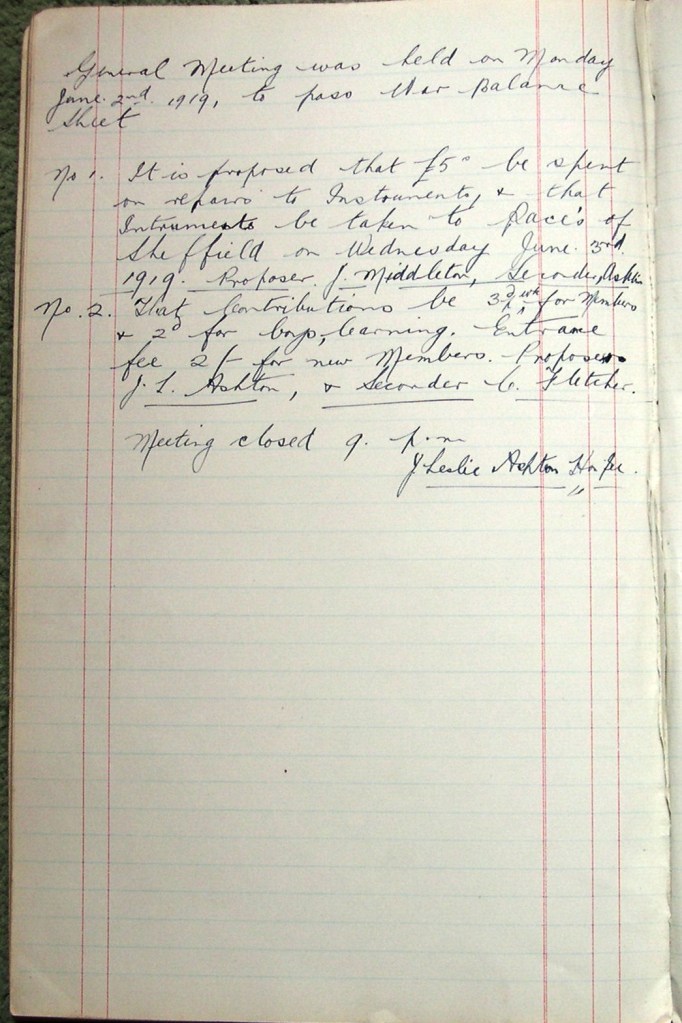 General Meeting was held on Monday
June 2nd. 1919, to pass War Balance
Sheet
No 1. It is proposed that £5° be spent
on repairs to Instruments, & that
Intruments be taken to Race's of
Sheffield on Wednesday June. 3rd.
1919. Proposer. J. Middleton, Seconder, Ashton
No. 2. That Contributions be 3d p wk for Members
& 2d for boys, learning. Entrance
fee 2/- for new Members. Proposer
J. L. Ashton, & Seconder C. Fletcher.
Meeting closed 9. p.m
J Leslie Ashton Hon Sec.